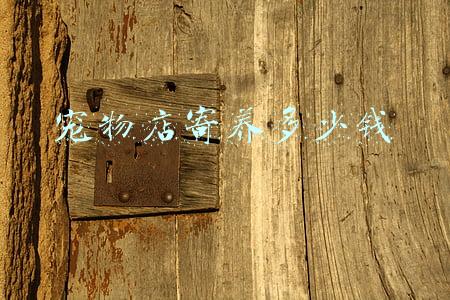 宠物店寄养多少钱